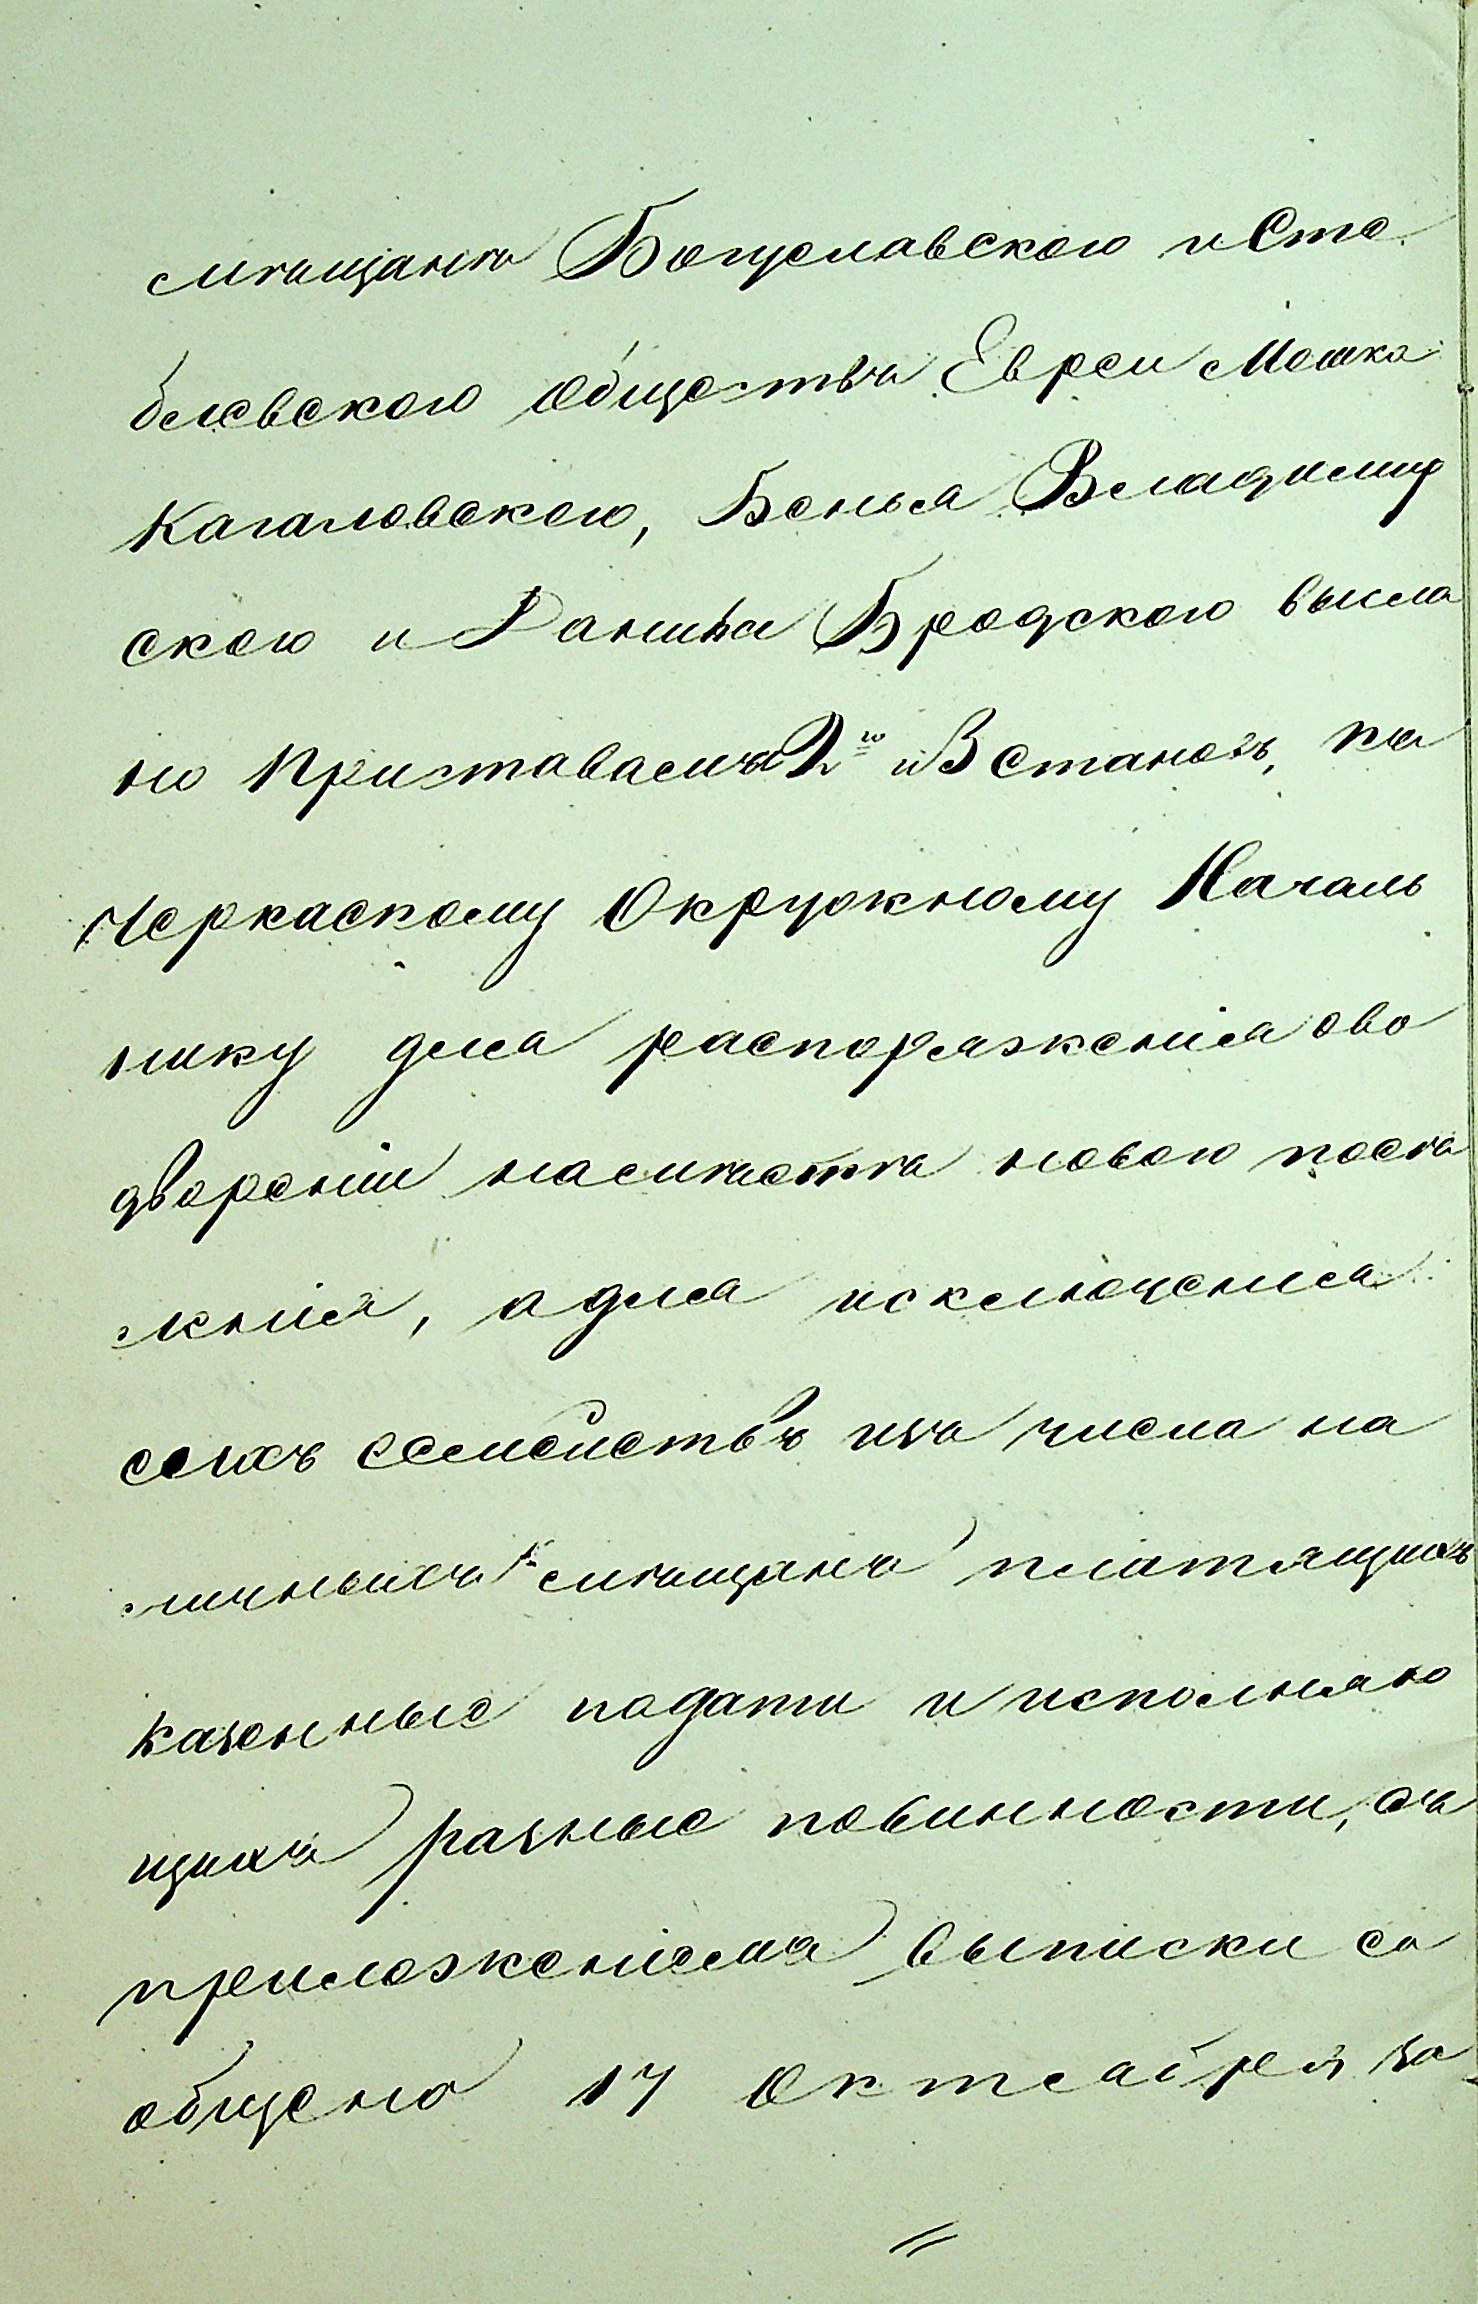 мѣщанъ Богуславского и Сте
блевского обществъ Евреи Мошка
Кагаловского, Бенья Владимир
ского и Данила Бродского высла
но Приставамъ 2го и 3 становъ, къ
Черкаскому Окружному Началь
нику для распоряженія ово
двореніи на мѣстѣ новою посѣ
ленія, а для исключенія
сихъ семействъ изъ числа на
личныхъ мѣщанъ платящихъ
казенные подати и исполняю
щихъ разные повинности, съ
приложеніемъ выписки со
общено 17 Октября за